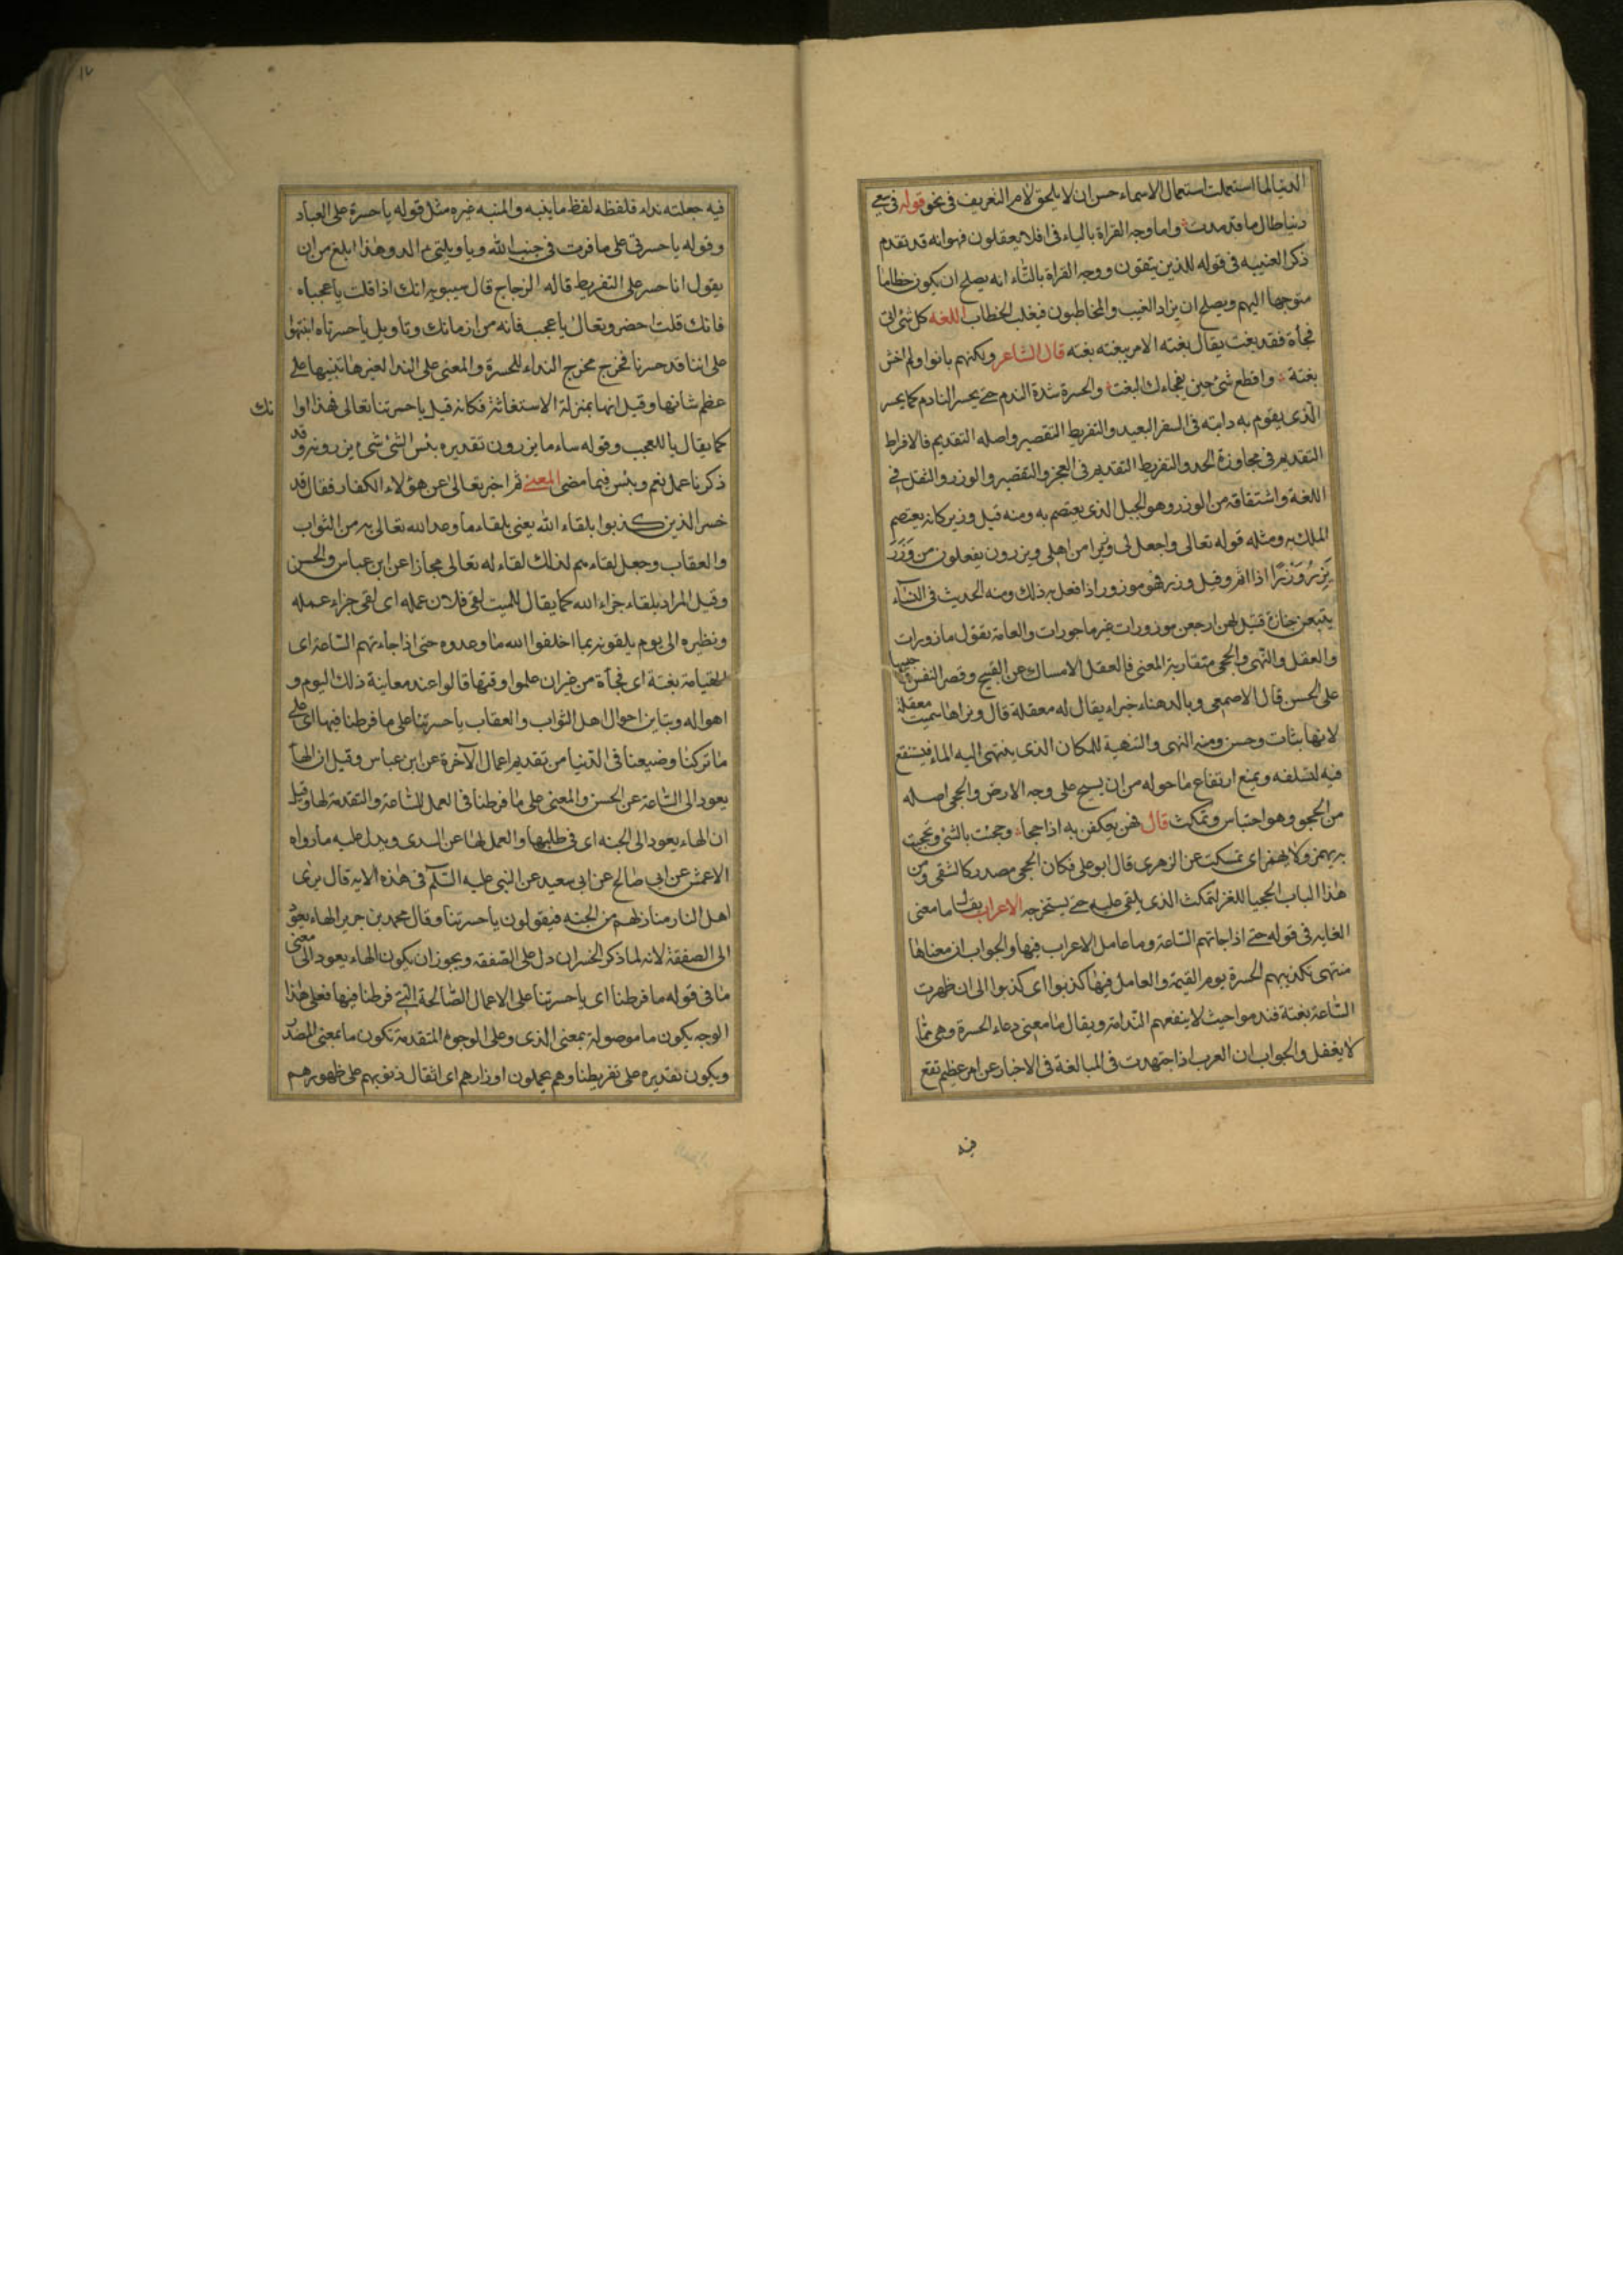 الدنيا لما استعملت استعمال الاسماء حسن ان لا يلحق لام التعريف فى نحو قوله فى سعى
دنيا طال ما قد مدت واما وجه القراة بالياء فى افلا يعقلون فهو انه قد تقدم
ذكر الغيبه فى قوله للذين يتقون ووجه القراة بالتاء انه يصلح ان يكون خطابا
متوجها اليهم ويصلح ان يراد الغيب والمخاطبون فيغلب الخطاب اللغه كل شئ اتى
فجأة فقد بغت يقال بغته الامر يبغته بغته قال الشاعر ولكنهم بانوا ولم اخش
بغتة وافظع شئ حين يفجاءك البغت والحسرة شدة الندم حتى يحسر النادم كما يحسر
الذى يقوم به دابته فى السفر البعيد والتفريط التقصير واصله التقديم فالافراط
التقديم فى مجاوزة الحد والتفريط التقديم فى العجز والتقصير والوزر والثقل فى
اللغة واشتقاقه من الوزر وهو الجبل الذى يعتصم به ومنه قيل وزير كانه يعتصم
الملك به ومثله قوله تعالى واجعل لى وزيرا من اهلى ويزرون يفعلون من وَزَرَ
يَزِرُ وَزْرًا اذا اثم وقيل وزر فهو موزور اذا فعل به ذلك ومنه الحديث فى النساء
يتبعن جنازة قتيل لهن ارجعن موزورات غير ماجورات والعامة يقول مازورات
والعقل والنهى والحجى متقاربة المعنى فالعقل الامساك عن القبيح وقصر النفس وحبسها
على الحسن قال الاصمعى وبالدهناء خبراء يقال له معقلة قال ونراها سميت معقلة
لانها وحسن ومنه النهى والتنهية للمكان الذى ينتهى اليه الماء فيستنقع
فيه لتسفله ويمنع ارتفاع ما حوله من ان يسيح على وجه الارض والحجى اصله
من الحجو وهو احتباس وتمكث قال فهن يعكفن به اذا حجا وحجئت بالشئ وتحجيت
به يهمز ولا يهمز اى تمسكت عن الزهرى قال ابو على فكان الحجى مصدر كالشقى ومن
هذا الباب الحجيا للغز لتمكث الذى يلقى عليه حتى يستخرجه الاعراب يقال ما معنى
الغايه فى قوله حتى اذا جاتهم الساعة وما عامل الاعراب فيها والجواب ان معناها
منتهى تكذيبهم الحسرة يوم القيمة والعامل فيها كذبوا اى كذبوا الى ان ظهرت
الساعة بغتة فندموا حيث لا ينفعهم الندامة ويقال ما معنى دعاء الحسرة وهى مما
لا يعقل والجواب ان العرب اذا اجتهدت فى المبالغة فى الاخبار عن امر عظيم تقع
فيه
١٧
فيه جعلته نداء فلفظه لفظ ما ينبه والمنبه غيره مثل قوله يا حسرة على العباد
وقوله يا حسرتى على ما فرت فى جنب الله ويا ويلتى االد وهذا ابلغ من ان
يقول انا حسر على التفريط قاله الزجاج قال سيبويه انك اذا قلت يا عجباه
فانك قلت احضر وتعال يا عجب فانه من ازمانك وتاويل يا حسرتاه انتبهوا
على اننا قد حسرنا فخرج مخرج النداء للحسرة والمعنى على النداء لغيرها تنبيها على
عظم شانها وقيل انها بمنزلة الاستغاثة فكانه قيل يا حسرتنا تعالى فهذا اوا
نك
كما يقال يا للعجب وقوله ساء ما يزرون تقديره بئس الشئ شئ يزرونه وقد
ذكرنا عمل نعم وبئس فيما مضى المعنى ثم اخبر تعالى عن هؤلاء الكفار فقال قد
خسر الذين كذبوا بلقاء الله يعنى بلقاء ما وعد الله تعالى به من الثواب
والعقاب وجعل لقاءهم لذلك لقاء له تعالى مجازا عن ابن عباس والحسن
وقيل المراد بلقاء جزاء الله كما يقال للميت لقى فلان عمله اى لقى جزاء عمله
ونظيره الى يوم يلقونه بما اخلفوا الله ما وعدوه حتى اذا جاءتهم الساعة اى
القيامة بغتة اى فجأة من غير ان علموا وقتها قالوا عند معاينة ذلك اليوم و
اهواله وتباين احوال اهل الثواب والعقاب يا حسرتنا على ما فرطنا فيها اى على
ما تركنا وضيعنا فى الدنيا من تقديم اعمال الآخرة عن ابن عباس وقيل ان الهاء
يعود الى الساعة عن الحسن والمعنى على ما فرطنا فى العمل للساعة والتقدمة لها وقيل
ان الهاء يعود الى الجنه اى فى طلبها والعمل لها عن السدى ويدل عليه ما رواه
الاعمش عن ابى صالح عن ابى سعيد عن النبى عليه السلم فى هذه الايه قال يرى
اهل النار منازلهم من الجنه فيقولون يا حسرتنا وقال محمد بن جرير الهاء يعود
الى الصفقة لانه لما ذكر الخسران دل على الصفقه ويجوز ان يكون الهاء يعود الى معنى
ما فى قوله ما فرطنا اى يا حسرتنا على الاعمال الصالحة التى فرطنا فيها فعلى هذا
الوجه يكون ما موصولة بمعنى الذى وعلى الوجوه المتقدمة تكون ما بمعنى المصدر
ويكون تقديره على تفريطنا وهم يحملون اوزارهم اى اثقال ذنوبهم على ظهورهم